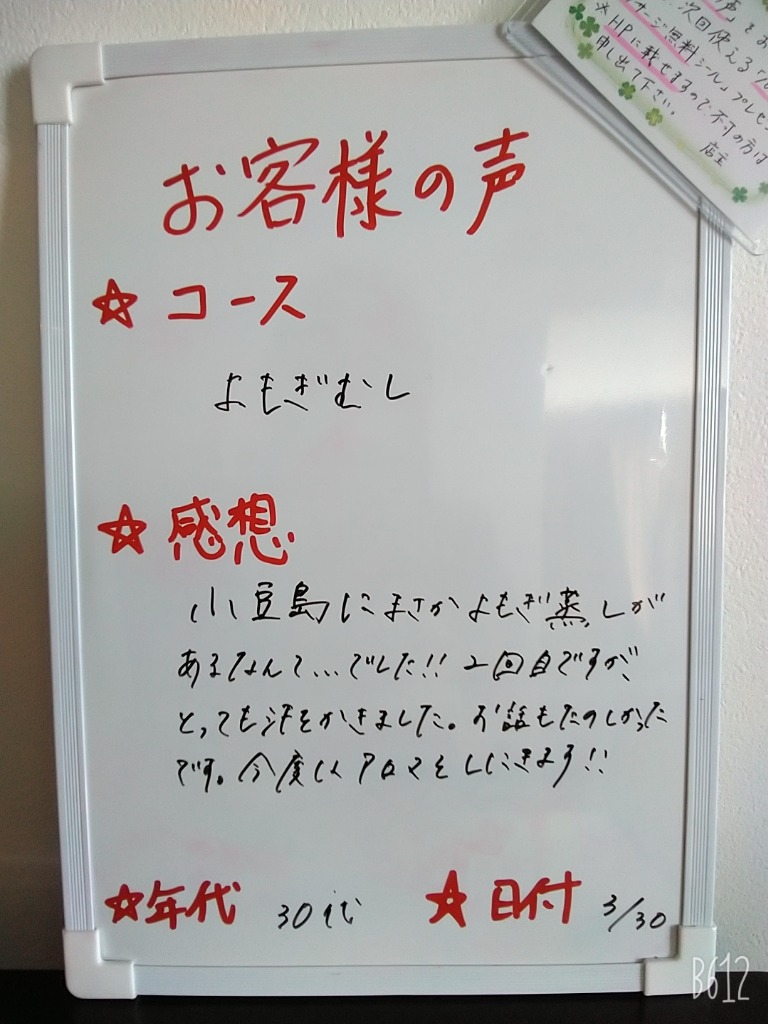 お客様の声
☆ コース
よもぎむし
☆ 感想
小豆島にまさかよもぎ蒸しが
あるなんて...でした!! 2回目ですが、
とっても汗をかきました。お話もたのしかった
です。今度はアロマをしにきます!!
☆年代 30代 ★日付 3/30
店』をお
次回使える
サージ無料シール」プレゼン
※HPに載せますので不可の方は
申し出て下さい。
店主
B612